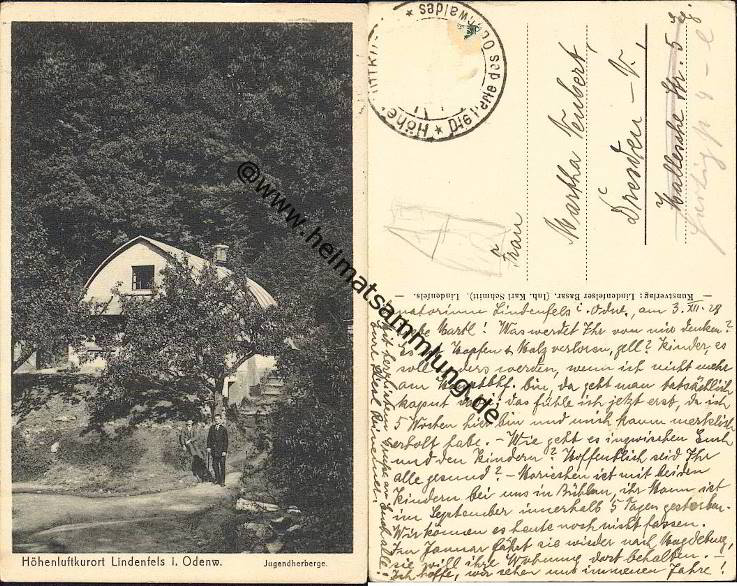 Höhenluftkurort Lindenfels i. Odenw.
Jugendherberge.
@www.heimatsammlung.de
Höhe
Die Perle des Odenwaldes
Frau
Martha Teubert,
Dresden – V.,
Hallesche Str. 5
Kunstverlag: Lindenfelser Basar, (Inh. Karl Schmitt), Lindenfels.
Lindenfels i. Odw., am 3. XII. 28
Martl! Was werdet Ihr von mir denken?
Hopfen & Malz verloren, gell? Kinder, es
soll anders werden, wenn ich nicht mehr
am bin, da geht man tatsächlich
kaput das fühle ich jetzt erst, da ich
5 Wochen hier bin und mich kaum merklich
erholt habe. – Wie geht es inzwischen Euch
und den Kindern? Hoffentlich seid Ihr
alle gesund? – Mariechen ist mit beiden
Kindern bei uns in Bühlau, ihr Mann ist
im September innerhalb 5 Tagen gestorben.
Wir können es heute noch nicht fassen.
Im Januar fährt sie wieder nach Magdeburg,
sie will ihre Wohnung dort behalten. –
Ich hoffe, wir sehen uns im neuen Jahre!
Mit herzlichem Grüße an Euch alle!
Eure